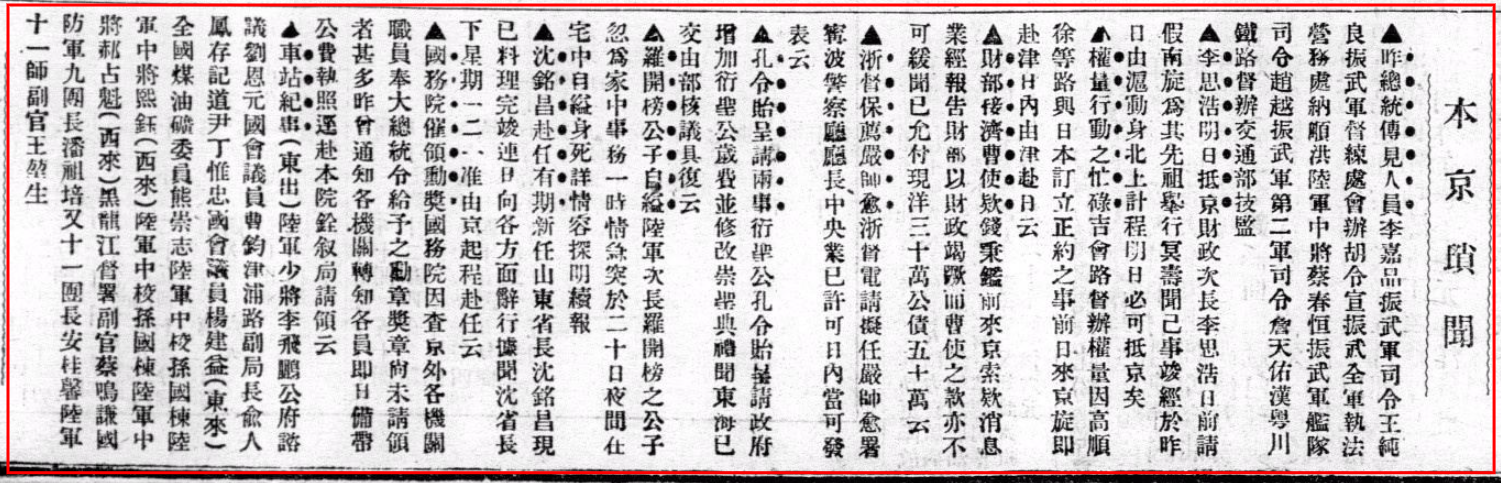 本京瑣聞
▲昨總統傳見人員李嘉品振武軍司令王純
良振武軍督練處會辦胡令宣振武全軍執法
營務處納順洪陸軍中將蔡春恒振武軍艦隊
司令趙越振武軍第二軍司令詹天佑漢粵川
鐵路督辦交通部技監
▲李思浩明日抵京財政次長李思浩日前請
假南旋爲其先祖舉行冥壽聞已事竣經於昨
日由滬動身北上計程明日必可抵京矣
▲權量行動之忙碌吉會路督辦權量因高順
徐等路與日本訂立正約之事前日來京旋即
赴津日內由津赴日云
▲財部接濟曹使欵錢秉鑑前來京索欵消息
業經報告財部以財政竭蹶而曹使之款亦不
可緩聞已允付現洋三十萬公債五十萬云
▲浙督保薦嚴師愈浙督電請擬任嚴師愈署
寗波警察廳廳長中央業已許可日內當可發
表云
▲孔令貽呈請兩事衍聖公孔令貽呈請政府
增加衍聖公歲費並修改崇聖典禮聞東海已
交由部核議具復云
▲羅開榜公子自縊陸軍次長羅開榜之公子
忽爲家中事務一時情急突於二十日夜間在
宅中自縊身死詳情容探明續報
▲沈銘昌赴任有期新任山東省長沈銘昌現
已料理完竣連日向各方面辭行據聞沈省長
下星期一二一准由京起程赴任云
▲國務院催領勳獎國務院因查京外各機關
職員奉大總統令給予之勳章獎章尙未請領
者甚多昨曾通知各機關轉知各員即日備帶
公費執照逕赴本院銓叙局請領云
▲車站紀事(東出)陸軍少將李飛鵬公府諮
議劉恩元國會議員曹鈞津浦路副局長俞人
鳳存記道尹丁惟忠國會議員楊建益(東來)
全國煤油礦委員熊崇志陸軍中校孫國棟陸
軍中將熙鈺(西來)陸軍中校孫國棟陸軍中
將郝占魁(西來)黑龍江督署副官蔡鳴謙國
防軍九團長潘祖培又十一團長安桂馨陸軍
十一師副官王堃生